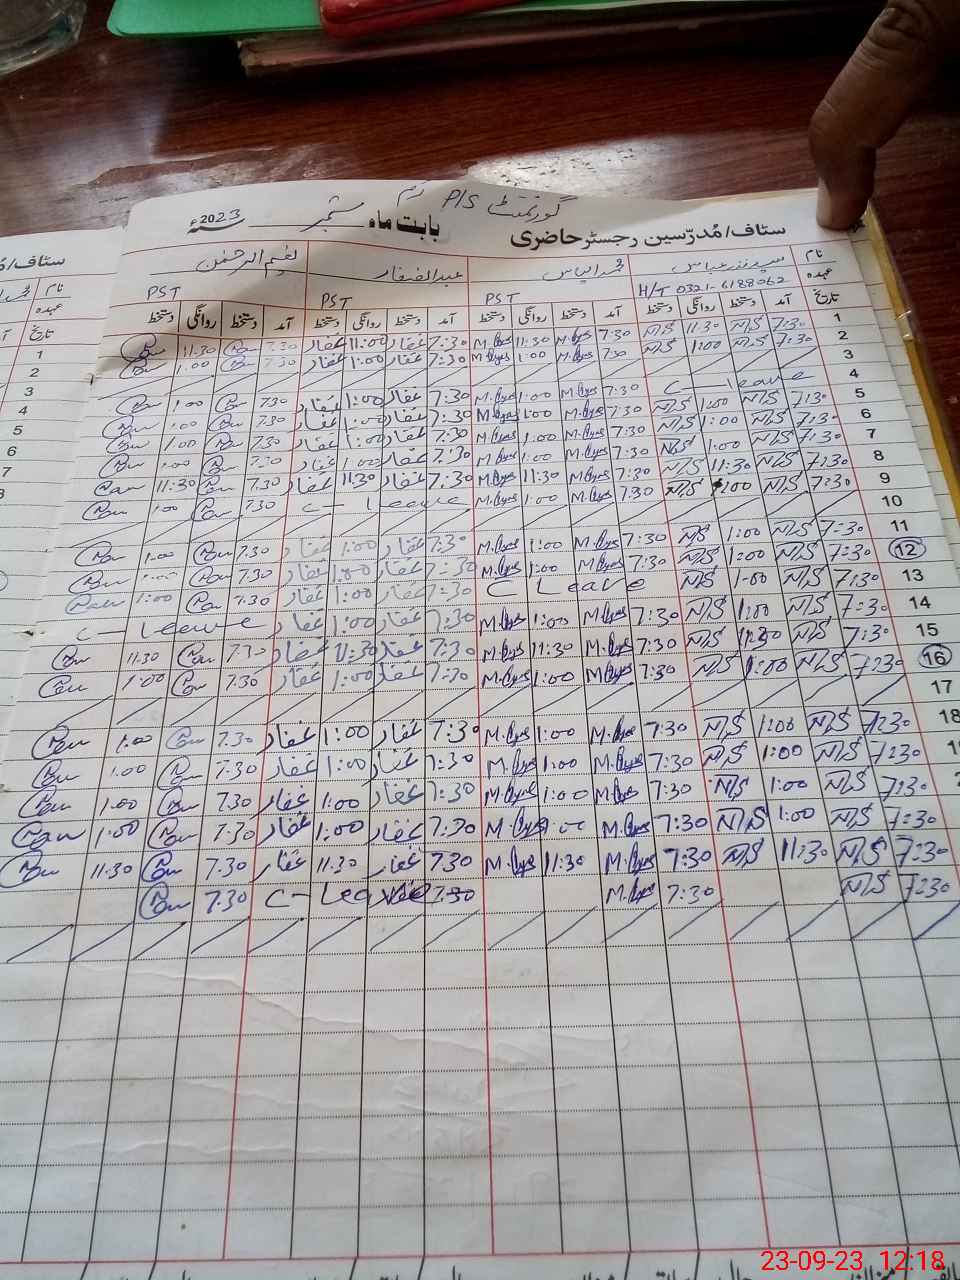 گورنمنٹ P/S
ستاف/مُدرّسین رجسٹر حاضری بابت ماہ ستمبر 2023ء
نام عبدالغفار
عہدہ H/T 0321-6188062 PST PST PST
تاریخ آمد دستخط روانگی دستخط آمد دستخط روانگی دستخط آمد دستخط روانگی دستخط آمد دستخط روانگی دستخط
1 7:30 N/S 11:30 N/S 7:30 M.Ilyas 11:30 M.Ilyas 7:30 غفار 11:00 غفار 7.30 11.30
2 7:30 N/S 1:00 N/S 7:30 M.Ilyas 1:00 M.Ilyas 7:30 غفار 1:00 غفار 7.30 1.00
3
4 C-leave 7:30 M.Ilyas 1:00 M.Ilyas 7:30 غفار 1:00 غفار 7.30 1.00
5 7:30 N/S 1:00 N/S 7:30 M.Ilyas 1:00 M.Ilyas 7:30 غفار 1:00 غفار 7.30 1.00
6 7:30 N/S 1:00 N/S 7:30 M.Ilyas 1:00 M.Ilyas 7:30 غفار 1:00 غفار 7.30 1.00
7 7:30 N/S 1:00 N/S 7:30 M.Ilyas 1:00 M.Ilyas 7:30 غفار 1:00 غفار 7.30 1.00
8 7:30 N/S 11:30 N/S 7:30 M.Ilyas 11:30 M.Ilyas 7:30 غفار 11:30 غفار 7.30 11:30
9 7:30 N/S 1:00 N/S 7:30 M.Ilyas 1:00 M.Ilyas C- Leave 7.30 1.00
10
11 7:30 N/S 1:00 N/S 7:30 M.Ilyas 1:00 M.Ilyas 7:30 غفار 1:00 غفار 7.30 1.00
12 7:30 N/S 1:00 N/S 7:30 M.Ilyas 1:00 M.Ilyas 7:30 غفار 1:00 غفار 7.30 1.00
13 7:30 N/S 1:00 N/S C Leave 7:30 غفار 1:00 غفار 7.30 1:00
14 7:30 N/S 1:00 N/S 7:30 M.Ilyas 1:00 M.Ilyas 7:30 غفار 1:00 غفار C-Leave
15 7:30 N/S 11:30 N/S 7:30 M.Ilyas 11:30 M.Ilyas 7:30 غفار 11:30 غفار 7.30 11.30
16 7:30 N/S 1:00 N/S 7:30 M.Ilyas 1:00 M.Ilyas 7:30 غفار 1:00 غفار 7.30 1:00
17
18 7:30 N/S 1:00 N/S 7:30 M.Ilyas 1:00 M.Ilyas 7:30 غفار 1:00 غفار 7.30 1.00
7:30 N/S 1:00 N/S 7:30 M.Ilyas 1:00 M.Ilyas 7:30 غفار 1:00 غفار 7.30 1.00
7:30 N/S 1:00 N/S 7:30 M.Ilyas 1:00 M.Ilyas 7:30 غفار 1:00 غفار 7.30 1:00
7:30 N/S 1:00 N/S 7:30 M.Ilyas 1:00 M.Ilyas 7:30 غفار 1:00 غفار 7.30 1:00
7:30 N/S 11:30 N/S 7:30 M.Ilyas 11:30 M.Ilyas 7:30 غفار 11:30 غفار 7.30 11.30
7:30 N/S 7:30 M.Ilyas 7:30 C- Leave 7.30
ستاف/
نام
عہدہ
تاریخ
1
2
3
4
5
6
7
23-09-23 12:18